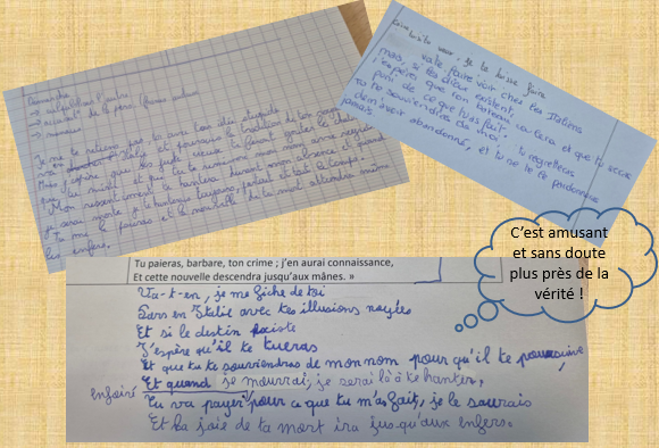 Je me te retiens pas, toi avec ton idée stupide
va Italie et poursuis la tradition de ton
Mais j'espère que les juste dieux te feront goûter le
que tu mérit et que tu te murmure mon nom avec
Mon ressentiment te hantera durant mon absence et quand
je serai morte je te hanterai toujours, partout et tout le temps.
Tu me le paieras et la nouvelle de ta mort attendra même
les enfers.
tu veux, je te laisse faire
vate faire voir chez les Italiens
mais, si les dieux existent,
j'espère que ton bateau coulera et que tu seras
puni de ce que tu as fait. tu regretteras
Tu te souviendras de moi,
dem'avoir abandonné, et tu ne te le pardonneras
jamais
C'est amusant
et sans doute
plus près de la
vérité !
Tu paieras, barbare, ton crime ; j'en aurai connaissance,
Et cette nouvelle descendra jusqu'aux mânes. »
Va-t-en, je me fiche de toi
Pars en Italie avec tes illusions noyées
Et si le destin existe
J'espère qu'il te tueras
Et que tu te souviendras de mon nom pour qu'il te poursuive,
Et quand je mourrai, je serai là à te hanter,
enfoiré
Tu va payer pour ce que tu m'as fait, je le saurais
Et la joie de ta mort ira jusqu'aux enfers.